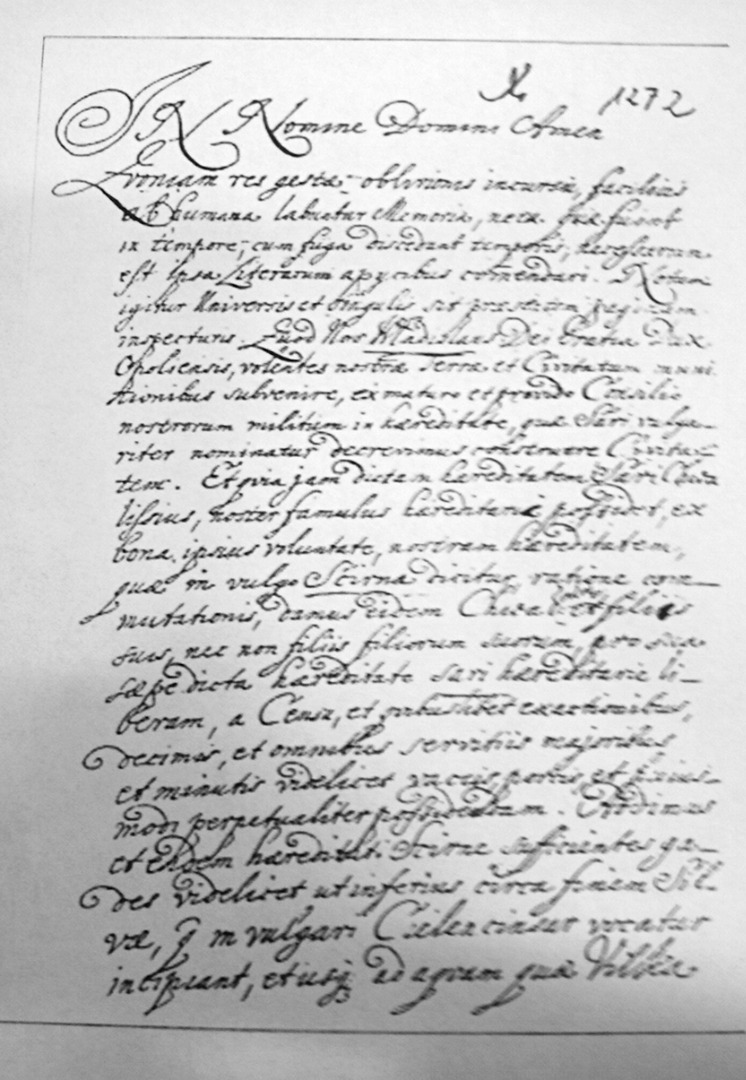 1272
IN Nomine Domini Amen
Qvoniam res gestæ oblivionis incursu, facilius
ab humana labuntur Memoria, ne ea quæ fiunt
in tempore, cum fuga discedant temporis, necessarium
est ipsa Literarum apicibus comendari. Notum
igitur Universis et singulis sit præsentem paginam
inspecturis. Quod Nos Wladislaus Dei Gratia Dux
Opoliensis, volentes nostræ Terræ et Civitatum muni
tionibus subvenire, ex maturo et provido Consilio
nostrorum militum in hæreditate, quæ Sari vulga-
riter nominatur decrevimus construere Civita-
tem. Et quia jam dictam hæreditatem Sari Chwa
lissius, noster famulus hæreditarie possidet, ex
bona ipsius voluntate, nostram hæreditatem,
quæ in vulgo Scirna dicitur, ratione com-
mutationis, damus eidem et filiis
suis, nec non filiis filiorum suorum, pro sua
sæpe dicta hæreditate Sari hæreditarie li-
beram, a Censu, et quibuslibet exactionibus,
decimis, et omnibus servitiis majoribus
et minutis videlicet vaccis, porcis, et hujus-
modi perpetualiter possidendam. Addimus
et eidem hæreditati Scirne sufficientes ga-
des videlicet ut inferius circa finem Sil-
væ, q in vulgari vocatur
incipiant, et usq ad agrum quæ